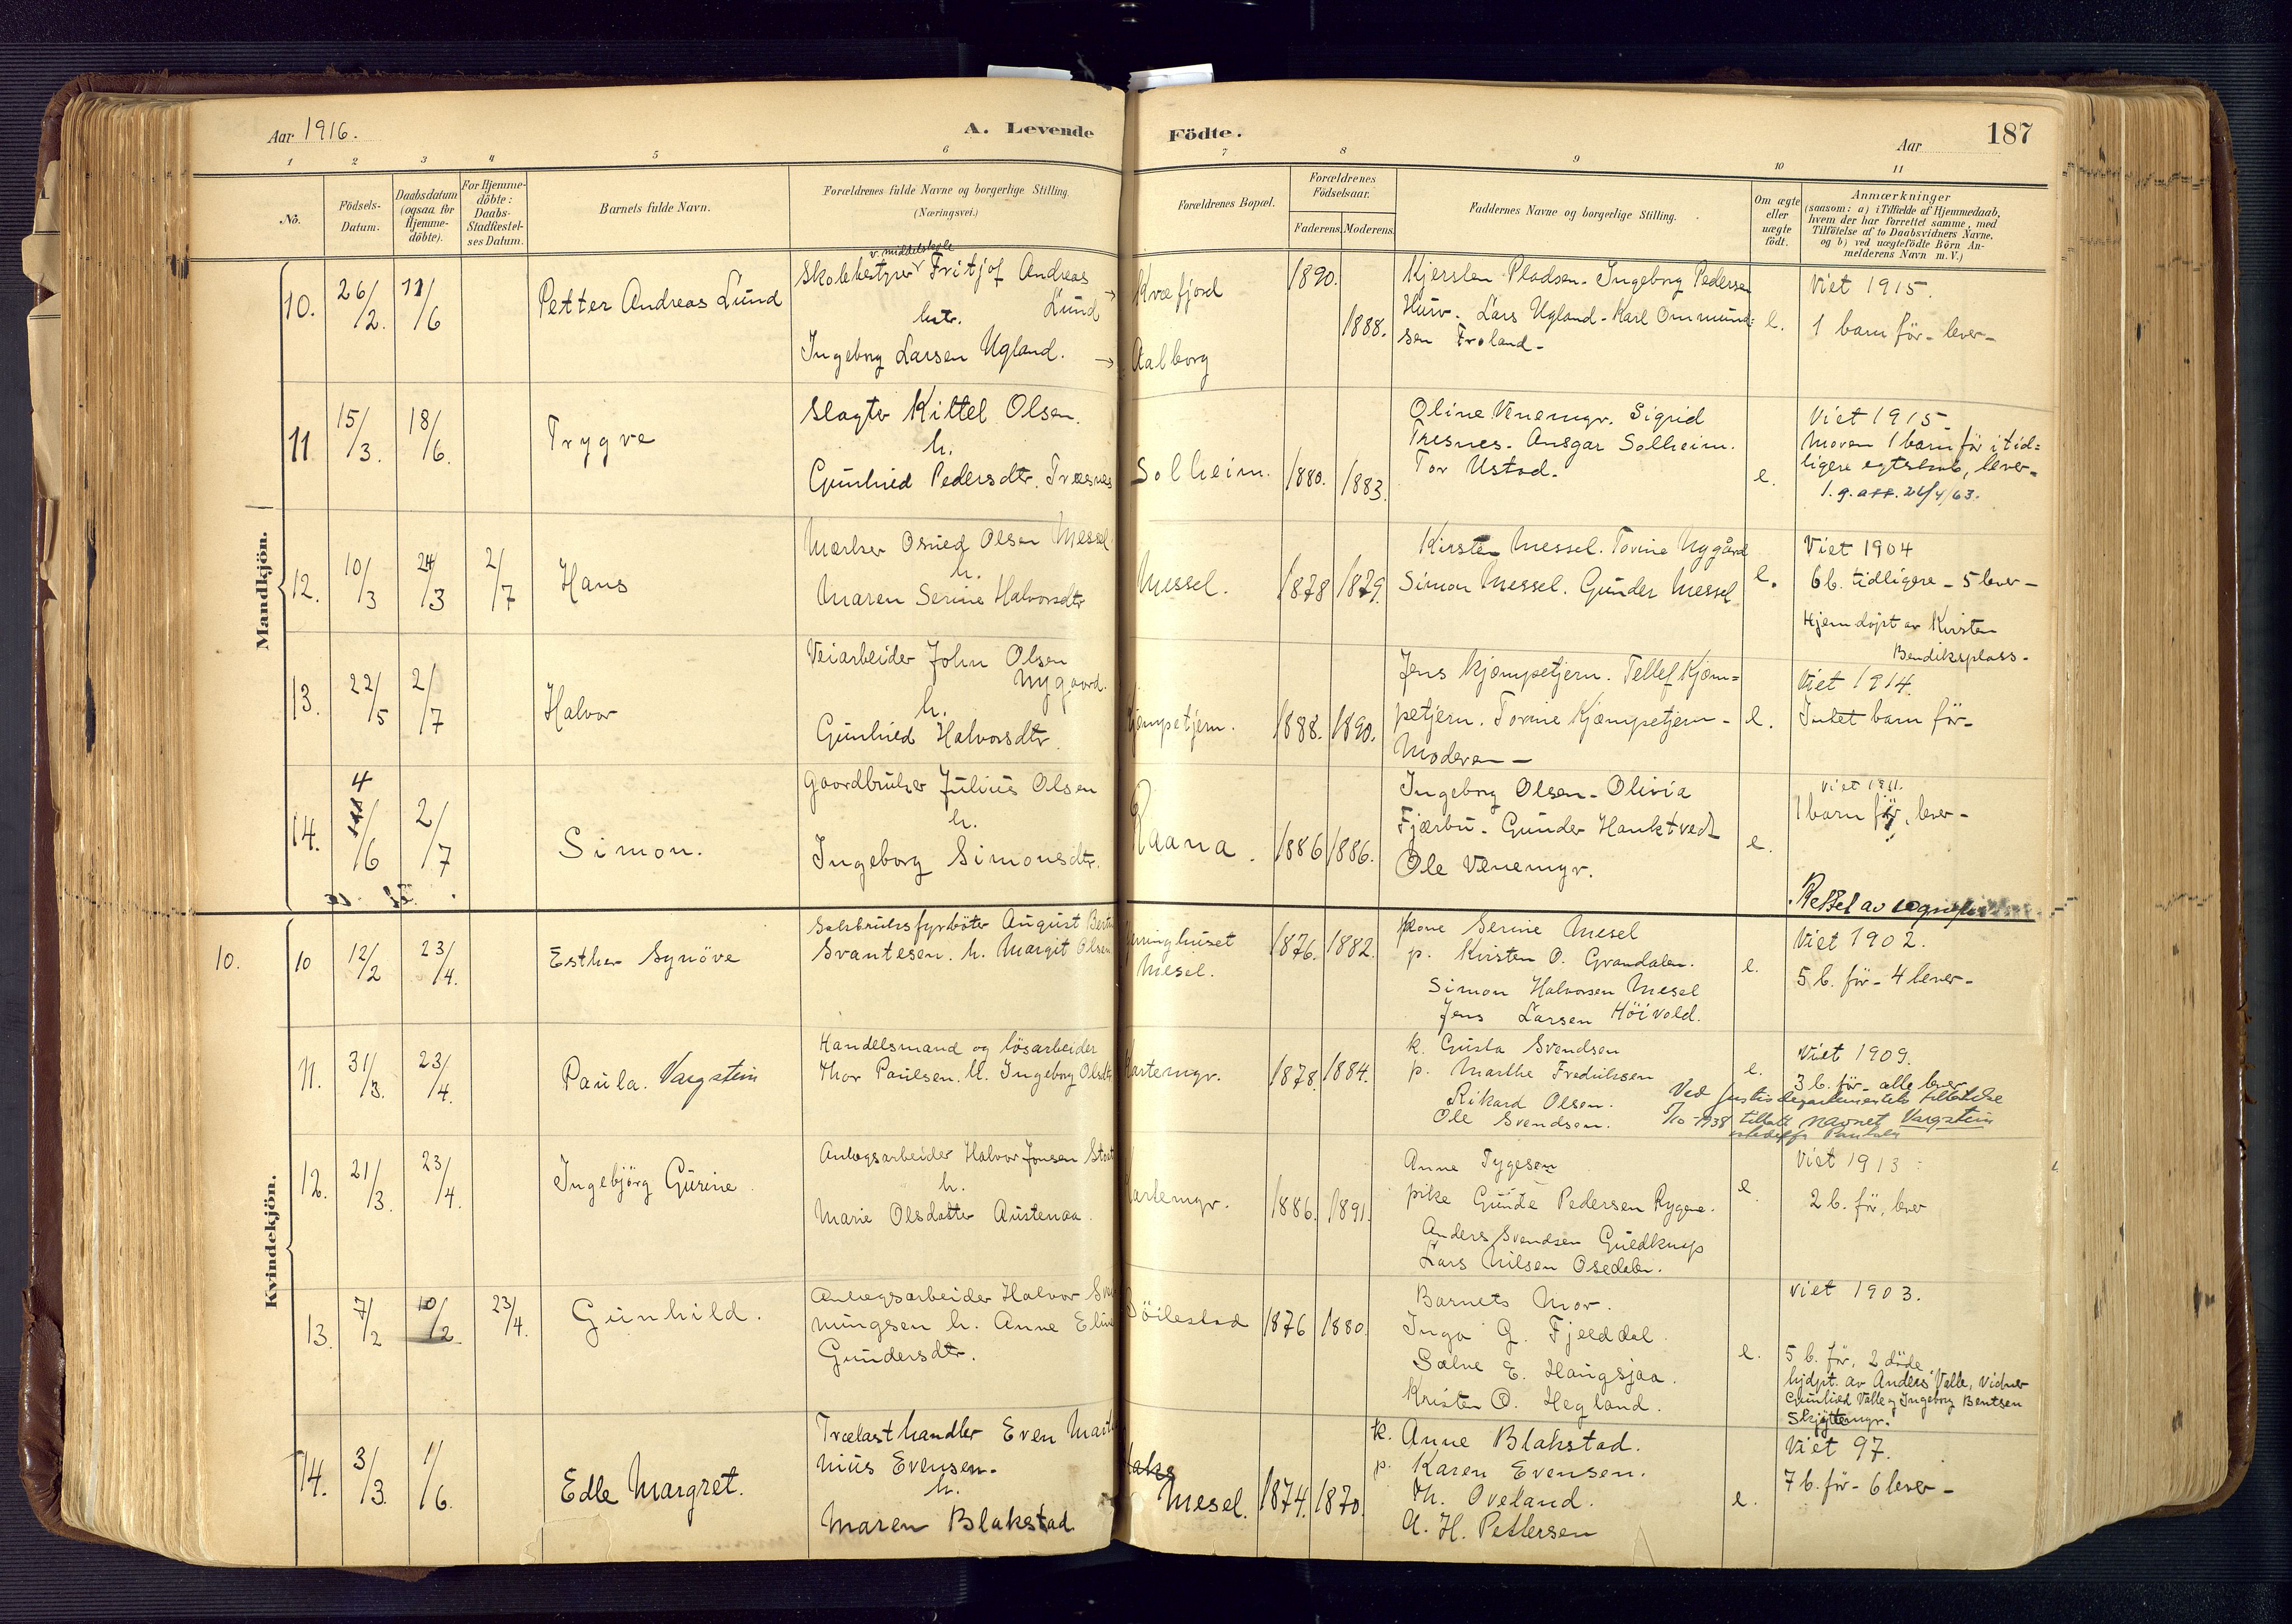 Aar 1916.
A. Levende Födte.
Aar
187
1 2 3 4 5 6 7 8 9 10 11
No.
Födsels-Datum.
Daabsdatum (ogsaa for Hjemme-döbte).
For Hjemme-döbte: Daabs-Stadfæstel-ses Datum.
Barnets fulde Navn.
Forældrenes fulde Navne og borgerlige Stilling.
(Næringsvei.)
Forældrenes Bopæl.
Forældrenes Födselsaar.
Faderens. Moderens.
Faddernes Navne og borgerlige Stilling.
Om ægte eller uægte födt.
Anmærkninger
(saasom: a) i Tilfælde af Hjemmedaab,
hvem der har forrettet samme, med
Tilföielse af to Daabsvidners Navne,
og b) ved uægtefödte Börn An-
melderens Navn m. V.)
Mandkjön.
10. 26/2. 11/6 Petter Andreas Lund
v. middelskole
Skolebestyrer Fritjof Andreas
Lund
htr.
Ingeborg Larsen Ugland.
Kvæfjord
Aalborg
1890. 1888.
Kjersten Pladsen. Ingeborg Pedersen
Hurv. Lars Ugland. Karl Ommund=
sen Froland.
e.
Viet 1915.
1 barn før - lever -
11. 15/3. 18/6. Trygve
Slagter Kittel Olsen.
h.
Gunhild Pedersdtr. Træsnes
Solheim. 1880. 1883.
Oline Venemyr. Sigrid
Tresnes. Ansgar Solheim.
Tor Ustad.
e.
Viet 1915
Moren 1 barn før i tid=
ligere egteskab, lever -
l. g. att. 26/4/63.
12. 10/3 24/3 2/7 Hans
Mærker Osuld Olsen Messel
h.
Maren Serine Halvorsdtr
Messel. 1878 1879.
Kirsten Messel. Torine Nygård
Simon Messel. Gunder Messel
e.
Viet 1904
6 b. tidligere - 5 lever -
Hjemdøpt av Kirsten
Bendiksplass.
13. 22/5 2/7 Halvor
Veiarbeider John Olsen
Nygaard.
h.
Gunhild Halvorsdtr.
Kjæmpetjern. 1888. 1890.
Jens Kjæmpetjern. Tellef Kjæm=
petjern. Torine Kjæmpetjern -
Moderen -
e.
Viet 1914.
Intet barn før -
14. 4/6 2/7 Simon.
Gaardbruker Julius Olsen
h.
Ingeborg Simonsdtr.
Raana. 1886 1886.
Ingeborg Olsen. Olivia
Fjærbu. Gunder Hauktvedt
Ole Venemyr.
e.
Viet 1911.
1 barn før, lever -
Rettet av sogneprest
Kvindekjön.
10. 10 12/2 23/4. Esther Synöve
Salsbruksfyrböter August Bertin
Svantesen. h. Margit Olsen
huset
Mesel.
1876. 1882.
kone Serine Mesel
p. Kirsten O. Grandalen.
Simon Halvorsen Mesel
Jens Larsen Höivold.
e.
Viet 1902.
5 b. før - 4 lever -
11. 31/3. 23/4. Paula. Vargstein
Handelsmand og løsarbeider
Thor Paulsen. h. Ingeborg Olsdtr
Kartemyr. 1878. 1884.
k. Gusta Svendsen
p. Marthe Fredriksen
Rikard Olsen.
Ole Svendsen.
e.
Viet 1909.
3 b. før - alle lever
Ved Justisdepartementets tillatelse
5/10 - 1938 tillatt navnet Vargstein
istedetfor Paulsen
12. 21/3. 23/4. Ingebjörg Gurine.
Anlægsarbeider Halvor Jonsen
h.
Marie Olsdatter Austenaa.
Kartemyr. 1886. 1891.
Anne Tygesen
pike Gunde Pedersen Rygene.
Anders Svendsen Guldknap
Lars Nilsen Osedalen.
e.
Viet 1913
2 b. før, lever
13. 7/2 10/2 23/4. Gunhild.
Anlægsarbeider Halvor
mingsen h. Anne Eline
Gundersdtr.
Böilestad 1876 1880
Barnets Mor.
Inga G. Fjelddal.
Salve E. Haugsjaa.
Kristen O. Hegland.
e.
Viet 1903.
5 b. før. 2 døde.
hjdpt. av Anders Valle, vidner
Gunhild Valle og Ingeborg Bentsen
Skjyttemyr.
14. 3/3. 1/6. Edle Margret.
Trælasthandler Even Marti
nius Evensen.
h.
Maren Blakstad
Mesel. 1874. 1870.
k. Anne Blakstad.
p. Karen Evensen.
Th. Oveland.
A. H. Pettersen
e.
Viet 97.
7 b. før - 6 lever -